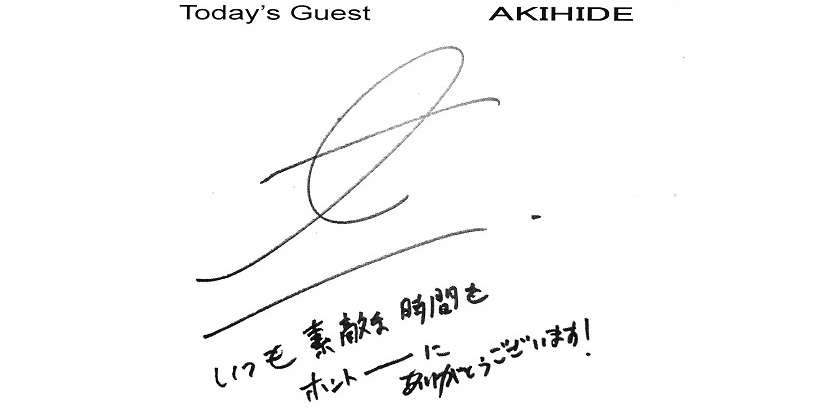 Today's Guest AKIHIDE
いつも素敵な時間を
ホントーーにありがとうございます!